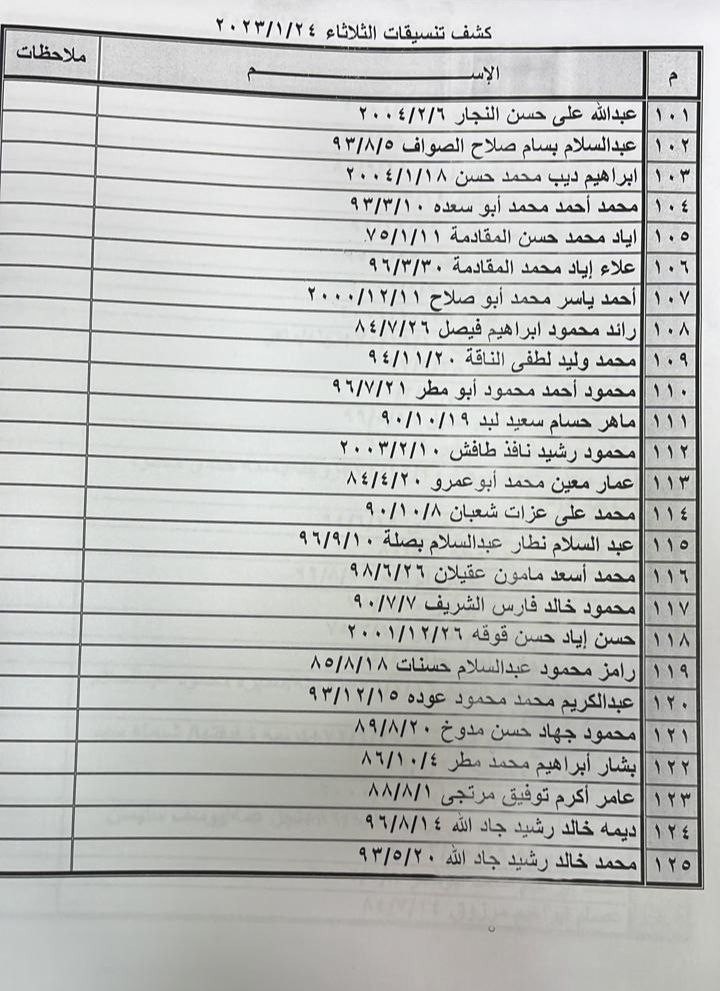 كشف تنسيقات الثلاثاء ٢٠٢٣/١/٢٤
م الإســــــــــــم ملاحظات
١٠١ عبدالله على حسن النجار ٢٠٠٤/٢/٦
١٠٢ عبدالسلام بسام صلاح الصواف ٩٣/٨/٥
١٠٣ ابراهيم ديب محمد حسن ٢٠٠٤/١/١٨
١٠٤ محمد أحمد محمد أبو سعده ٩٣/٣/١٠
١٠٥ اياد محمد حسن المقادمة ٧٥/١/١١
١٠٦ علاء إياد محمد المقادمة ٩٦/٣/٣٠
١٠٧ أحمد ياسر محمد أبو صلاح ٢٠٠٠/١٢/١١
١٠٨ رائد محمود ابراهيم فيصل ٨٤/٧/٢٦
١٠٩ محمد وليد لطفى الناقة ٩٤/١١/٢٠
١١٠ محمود أحمد محمود أبو مطر ٩٦/٧/٢١
١١١ ماهر حسام سعيد لبد ٩٠/١٠/١٩
١١٢ محمود رشيد نافذ طافش ٢٠٠٣/٢/١٠
١١٣ عمار معين محمد أبوعمرو ٨٤/٤/٢٠
١١٤ محمد على عزات شعبان ٩٠/١٠/٨
١١٥ عبد السلام نطار عبدالسلام بصلة ٩٦/٩/١٠
١١٦ محمد أسعد مامون عقيلان ٩٨/٦/٢٦
١١٧ محمود خالد فارس الشريف ٩٠/٧/٧
١١٨ حسن إياد حسن قوقه ٢٠٠١/١٢/٢٦
١١٩ رامز محمود عبدالسلام حسنات ٨٥/٨/١٨
١٢٠ عبدالكريم محمد محمود عوده ٩٣/١٢/١٥
١٢١ محمود جهاد حسن مدوخ ٨٩/٨/٢٠
١٢٢ بشار أبراهيم محمد مطر ٨٦/١٠/٤
١٢٣ عامر أكرم توفيق مرتجى ٨٨/٨/١
١٢٤ ديمه خالد رشيد جاد الله ٩٦/٨/١٤
١٢٥ محمد خالد رشيد جاد الله ٩٣/٥/٢٠